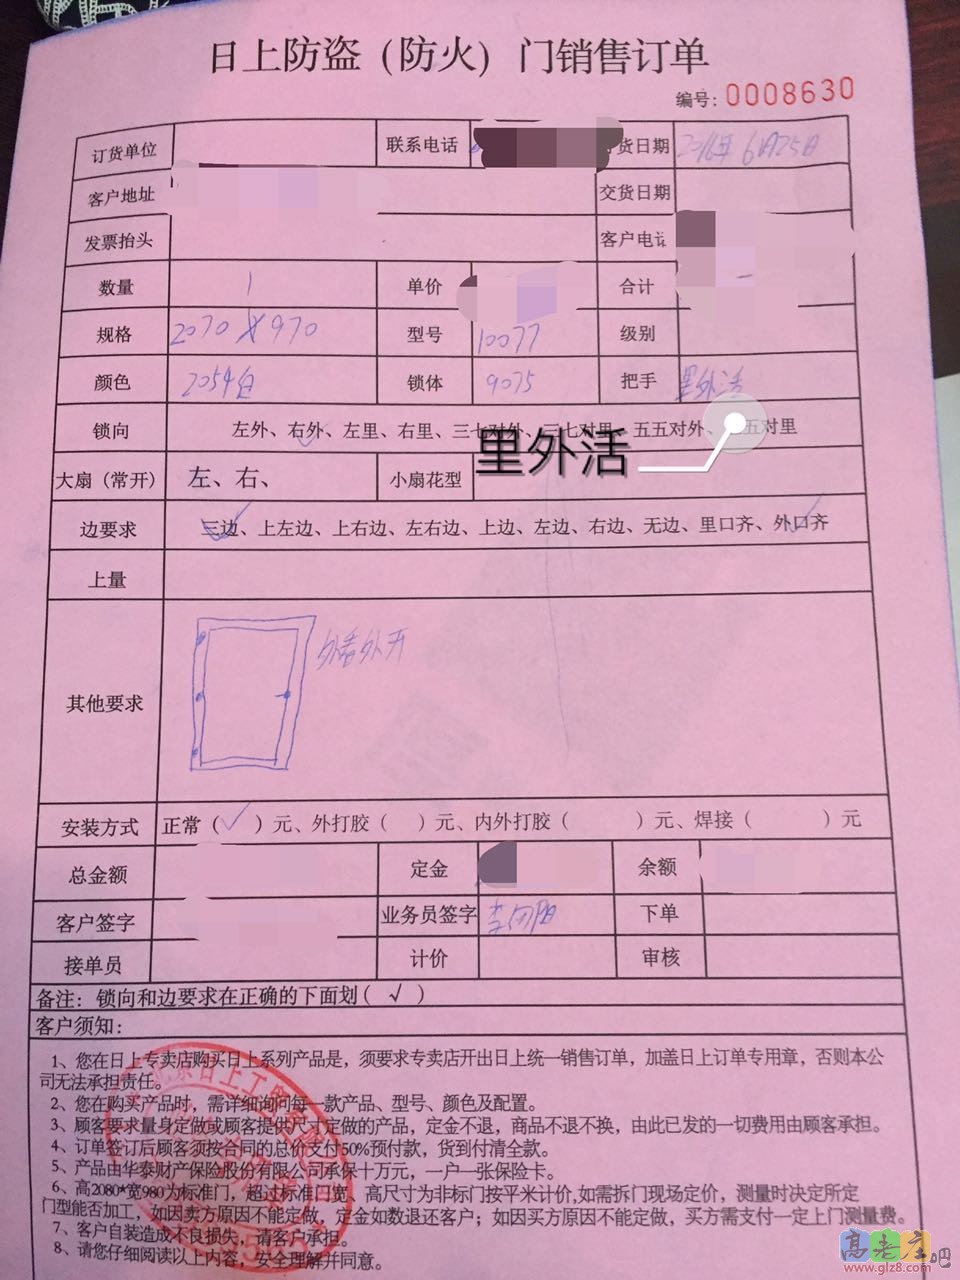 日上防盗（防火）门销售订单
编号：0008630
订货单位 联系电话 货日期 2016年 6月25日
客户地址 交货日期
发票抬头 客户电话
数量 1 单价 合计
规格 2070×970 型号 10077 级别
颜色 2054色 锁体 9075 把手 里外活
锁向 左外、右外、左里、右里、三七对外、三七对里、五五对外、五对里
里外活
大扇（常开） 左、右、 小扇花型
边要求 三边、上左边、上右边、左右边、上边、左边、右边、无边、里口齐、外口齐
上量
其他要求 外看外开
安装方式 正常（✓ ）元、外打胶（ ）元、内外打胶（ ）元、焊接（ ）元
总金额 定金 余额
客户签字 业务员签字 下单
接单员 计价 审核
备注：锁向和边要求在正确的下面划（ √ ）
客户须知：
1、您在日上专卖店购买日上系列产品是，须要求专卖店开出日上统一销售订单，加盖日上订单专用章，否则本公
司无法承担责任。
2、您在购买产品时，需详细询问每一款产品、型号、颜色及配置。
3、顾客要求量身定做或顾客提供尺寸定做的产品，定金不退，商品不退不换，由此已发的一切费用由顾客承担。
4、订单签订后顾客须按合同的总价支付50%预付款，货到付清全款。
5、产品由华泰财产保险股份有限公司承保十万元，一户一张保险卡。
6、高2080*宽980为标准门，超过标准口宽、高尺寸为非标门按平米计价,如需拆门现场定价，测量时决定所定
门型能否加工，如因卖方原因不能定做，定金如数退还客户；如因买方原因不能定做，买方需支付一定上门测量费。
7、客户自装造成不良损失，请客户承担。
8、请您仔细阅读以上内容，安全理解并同意。
高老庄吧
www.glz8.com